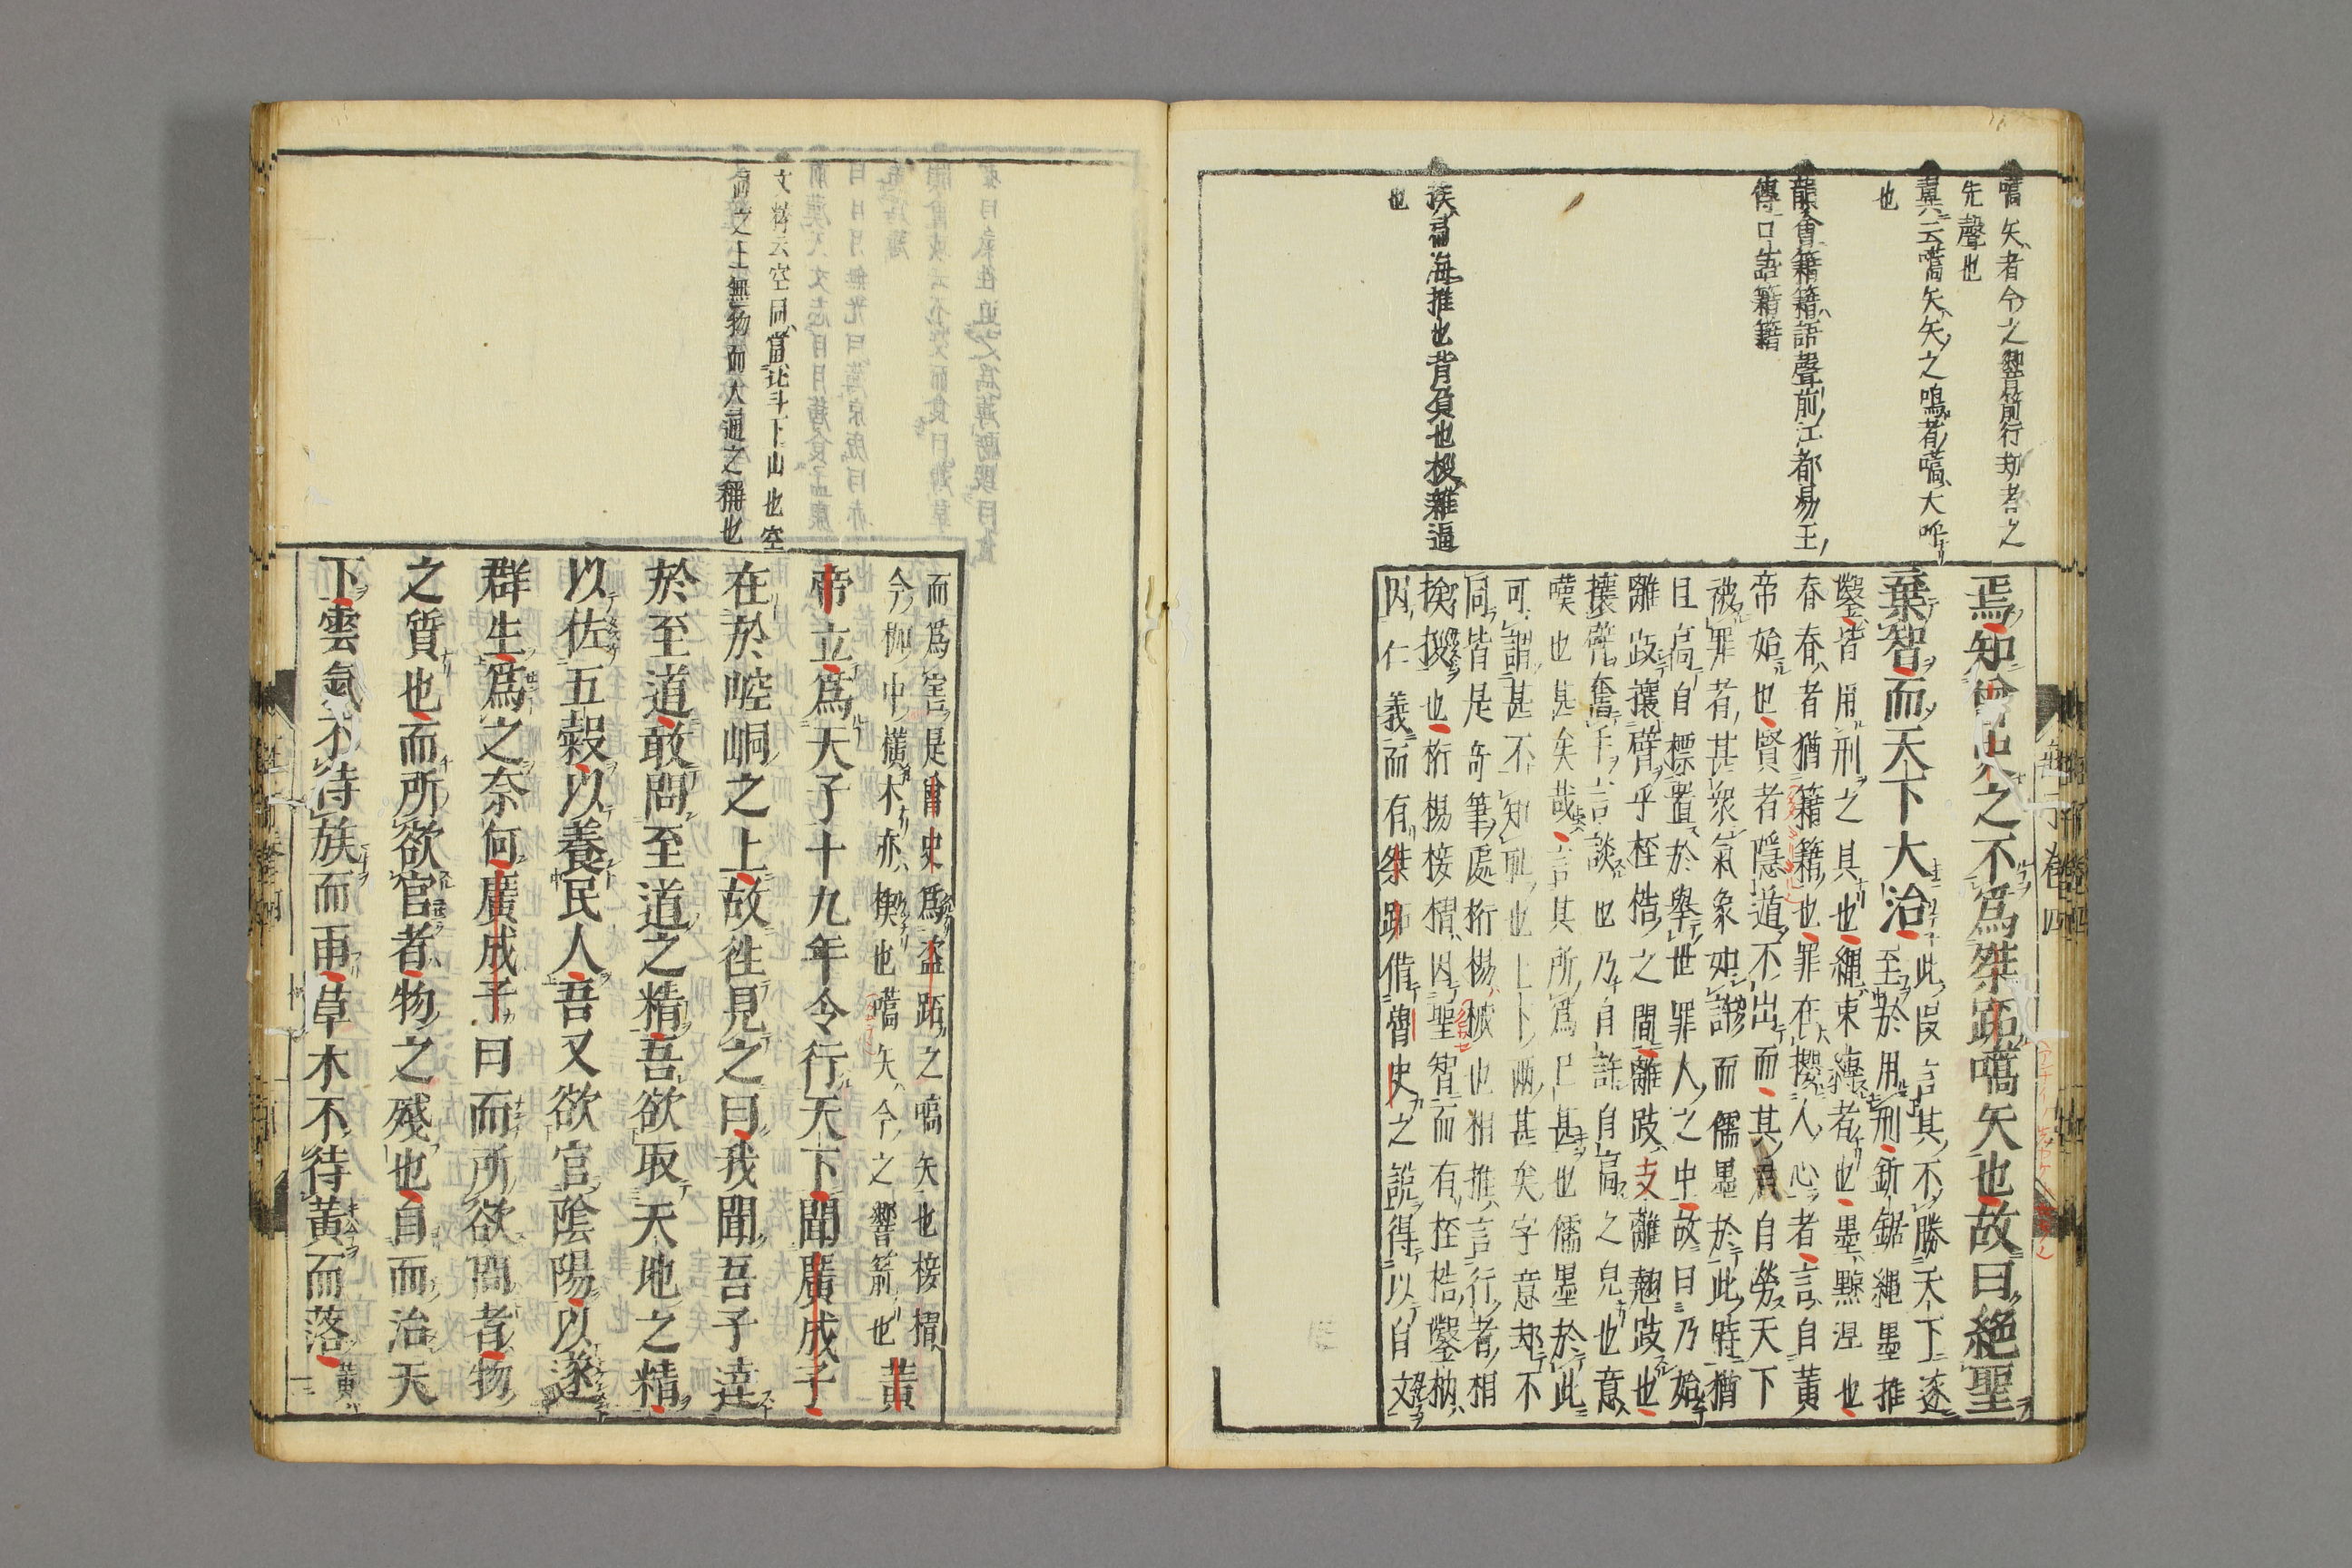 嚆矢者今之響箭行刼者之
先聲也
翼云嚆矢矢之鳴者嚆大呼
也
韻會籍籍語聲前江都易王
傳口語籍籍
挨字海推也背負也拶雜逼
也
焉知曾史之不爲桀跖嚆矢也故曰絶聖
棄智而天下大治此段言其不勝天下遂
至於用刑釿鋸繩墨推
鑿皆用刑之具也繩束縛者也墨黥涅也
春春者猶籍籍也罪在攖人心者言自黃
帝始也賢者隱遁不出而其君自勞天下
被罪者甚衆氣象如許而儒墨於此時猶
且高自標置於舉世罪人之中故曰乃始
離跂攘臂乎桎梏之間離跂支離翹跂也
攘臂奮手言談也乃自許自高之皃也意
嘆也甚矣哉言其所爲已甚也儒墨於此
可謂甚不知耻也上下兩甚矣字意却不
同皆是奇筆處桁楊械也相推言行者相
挨拶也桁楊椄槢因聖智而有桎梏鑿枘
因仁義而有桀跖借曾史之說得以自文
而爲害是曾史爲盜跖之嚆矢也椄槢
今枷中橫木亦楔也嚆矢今之響箭也
黃
帝立爲天子十九年令行天下聞廣成子
在於崆峒之上故徃見之曰我聞吾子達
於至道敢問至道之精吾欲取天地之精
以佐五穀以養民人吾又欲官陰陽以遂
群生爲之奈何廣成子曰而所欲問者物
之質也而所欲官者物之殘也自而治天
下雲氣不待族而雨草木不待黃而落黃
文粹云空同當北斗下山也空
同之上無物而大通之稱也